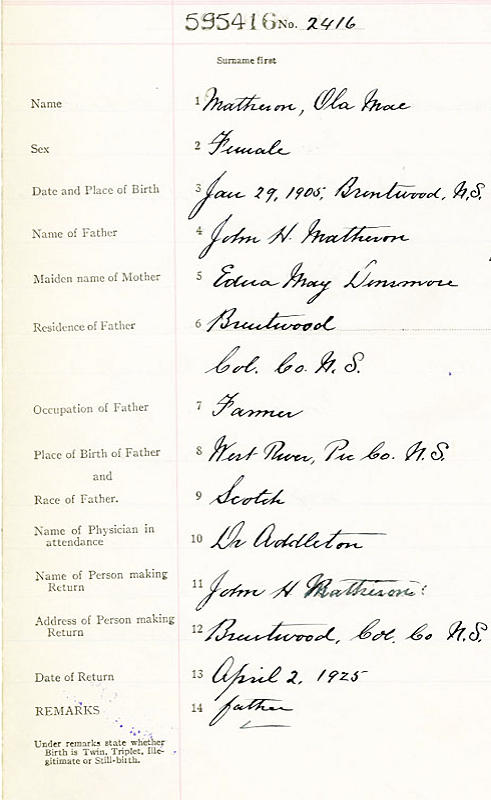 595416 No. 2416
Surname first
Name 1 Matheson, Ola Mae
Sex 2 Female
Date and Place of Birth 3 Jan 29, 1905, Brentwood, N.S.
Name of Father 4 John H. Matheson
Maiden name of Mother 5 Edna May Densmore
Residence of Father 6 Brentwood
Col. Co. N.S.
Occupation of Father 7 Farmer
Place of Birth of Father 8 West River, Pic Co. N.S.
and
Race of Father. 9 Scotch
Name of Physician in
attendance 10 Dr Addleton
Name of Person making
Return 11 John H Matheson
Address of Person making
Return 12 Brentwood, Col. Co N.S.
Date of Return 13 April 2, 1925
REMARKS 14 father
Under remarks state whether
Birth is Twin, Triplet, Ille-
gitimate or Still-birth.